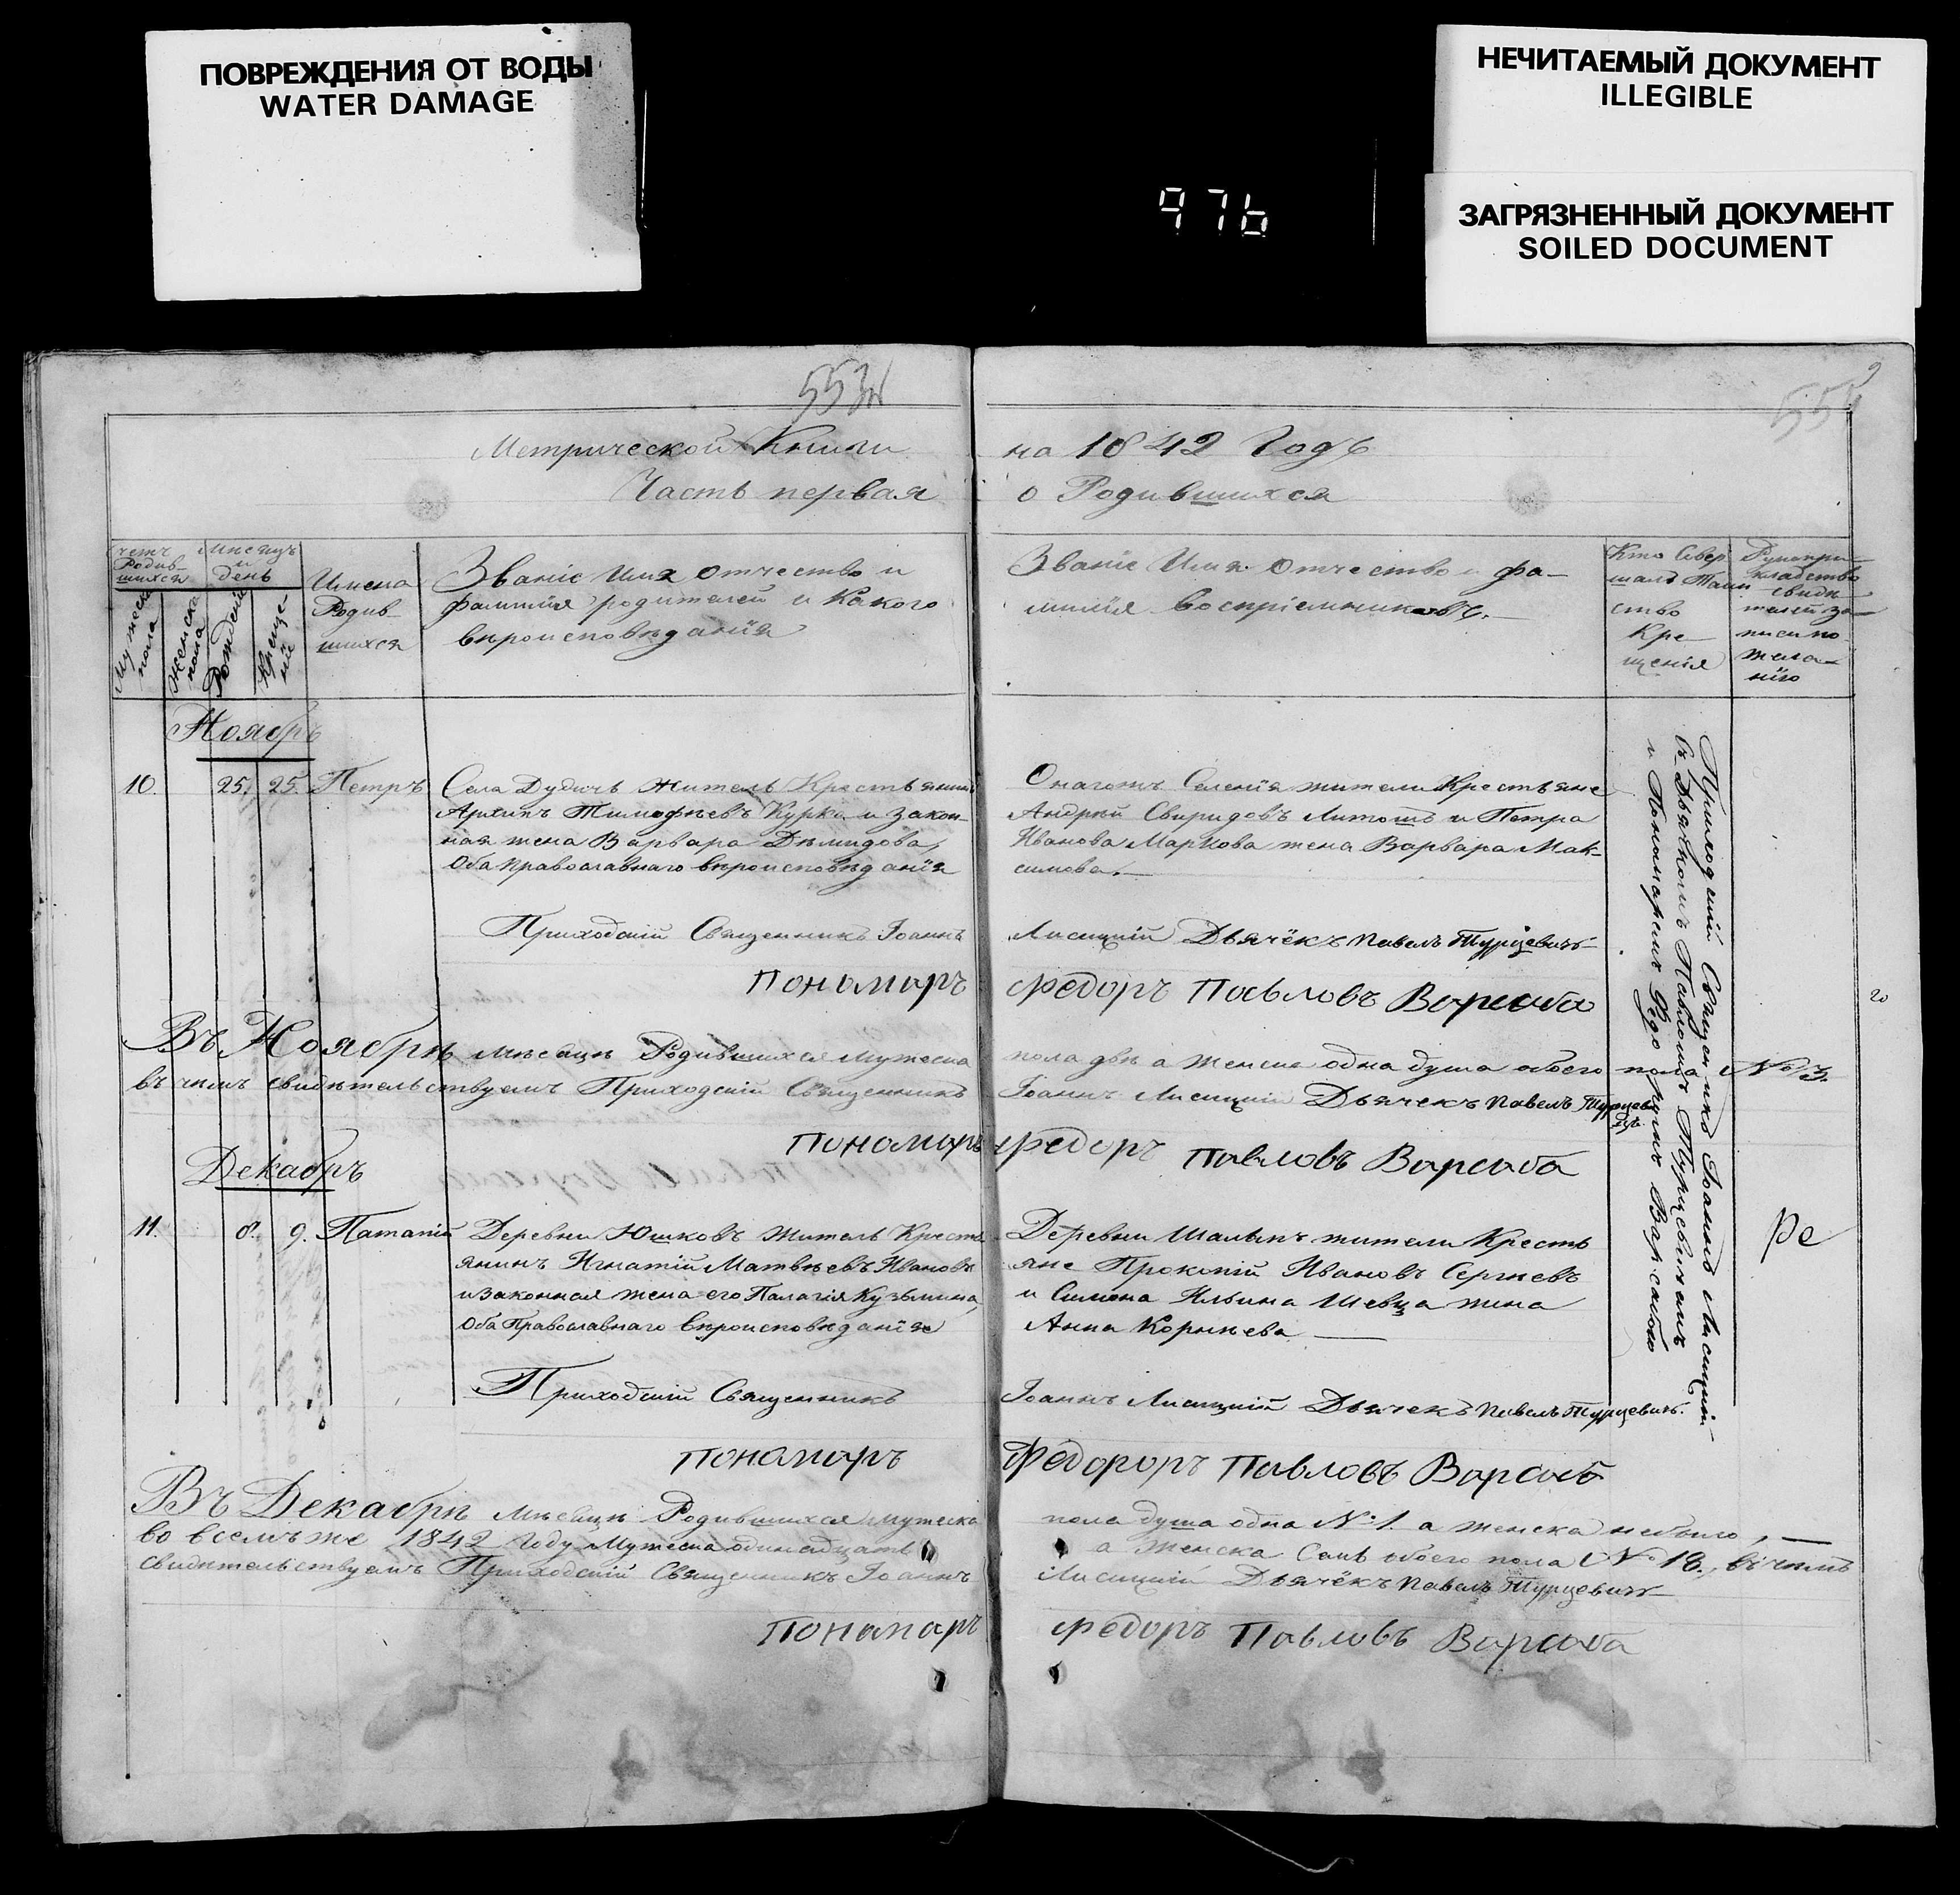 ПОВРЕЖДЕНИЯ ОТ ВОДЫ
WATER DAMAGE
НЕЧИТАЕМЫЙ ДОКУМЕНТ
ILLEGIBLE
976
ЗАГРЯЗНЕННЫЙ ДОКУМЕНТ
SOILED DOCUMENT
553
554
Метрической Книги на 1842 Годъ
Часть первая о Родившихся
Счетъ Родив-
шихся
Мѣсяцъ
и
день
Мужеска
пола
Женска
пола
Рожденія
Креще-
нія
Имена
Родив-
шихся
Званіе Имя Отчество и
фамилія родителей и Какого
вѣроисповѣданія
Званіе Имя Отчество и фа-
милія Воспріемниковъ.
Кто Совер
шалъ Таин
ство
Кре-
щенія
Рукопри-
кладство
свидѣ-
телей за-
писи по
жела-
нію
Ноябрь
10. 25. 25. Петръ
Села Дудичъ Житель Крестьянинъ
Архипъ Тимофѣевъ Курко и Закон-
ная жена Варвара Демидова,
Оба православнаго вѣроисповѣданія
Онагожъ Селенія жители Крестьяне
Андрей Свиридовъ Литошъ и Петра
Иванова Маркова жена Варвара Мак-
симова.
Приходскій Священникъ Іоаннъ Лисицкій Дьячёкъ Павелъ Турцевичъ
Пономарь Федоръ Павловъ Варсаба
Въ Ноябрѣ мѣсяцѣ Родившихся мужеска пола двѣ а женска одна душа обоего пола №3.
въ чемъ свидѣтельствуемъ Приходскій Священникъ Іоаннъ Лисицкій Дьячекъ Павелъ Турцеви
чъ
Пономарь Федоръ Павловъ Варсаба
Декабрь
11. 8. 9. Патапій
Деревни Юшковъ Житель Кресть
янинъ Игнатій Матвѣевъ Ивановъ
и Законная жена его Палагія Кузьмина,
Оба Православнаго вѣроисповѣданія
Деревни жители Кресть
яне Прокопій Ивановъ Сергѣевъ
и Симона Ильина Шевца жена
Анна Корнѣева
Приходскій Священникъ Іоаннъ Лисицкій Дьячекъ Павелъ Турцевичъ.
Пономарь Федороръ Павловъ Варсаб
Въ Декабрѣ мѣсяцѣ Родившихся мужеска пола душа одна №1. а женска небыло,
во всемъ же 1842 Году Мужеска одинадцать а Женска Семь обоего пола №18., въ чемъ
свидѣтельствуемъ Приходскій Священникъ Іоаннъ Лисицкій Дьячёкъ Павелъ Турцевичъ
Пономарь Федоръ Павловъ Варсаба
Приходскій Священникъ Іоаннъ Лисицкій
съ Дьячкомъ Павломъ Турцевичемъ
и Пономаремъ Федоромъ Варсабою